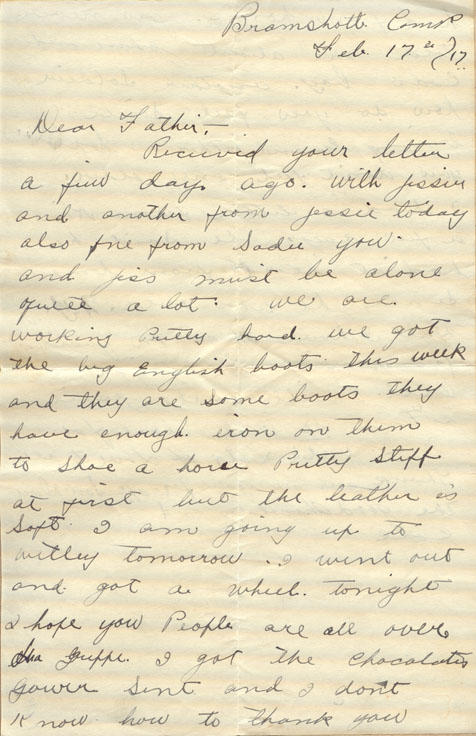 Bramshott Camp
Feb. 17th/17.
Dear Father,-
Received your letter
a few days ago. with jessies
and another from jessie today
also one from Sadie you
and jess must be alone
quite a lot. we are.
working Pretty hard. we got
the big English boots this week
and they are some boots they
have enough. iron on them
to shoe a horse Pretty Stiff
at first but the leather is
Soft. I am going up to
witley tomorrow. I went out
and got a wheel. tonight
I hope you People are all over
Gripp. I got the Chocolates
sent and I dont
Know how to thank you